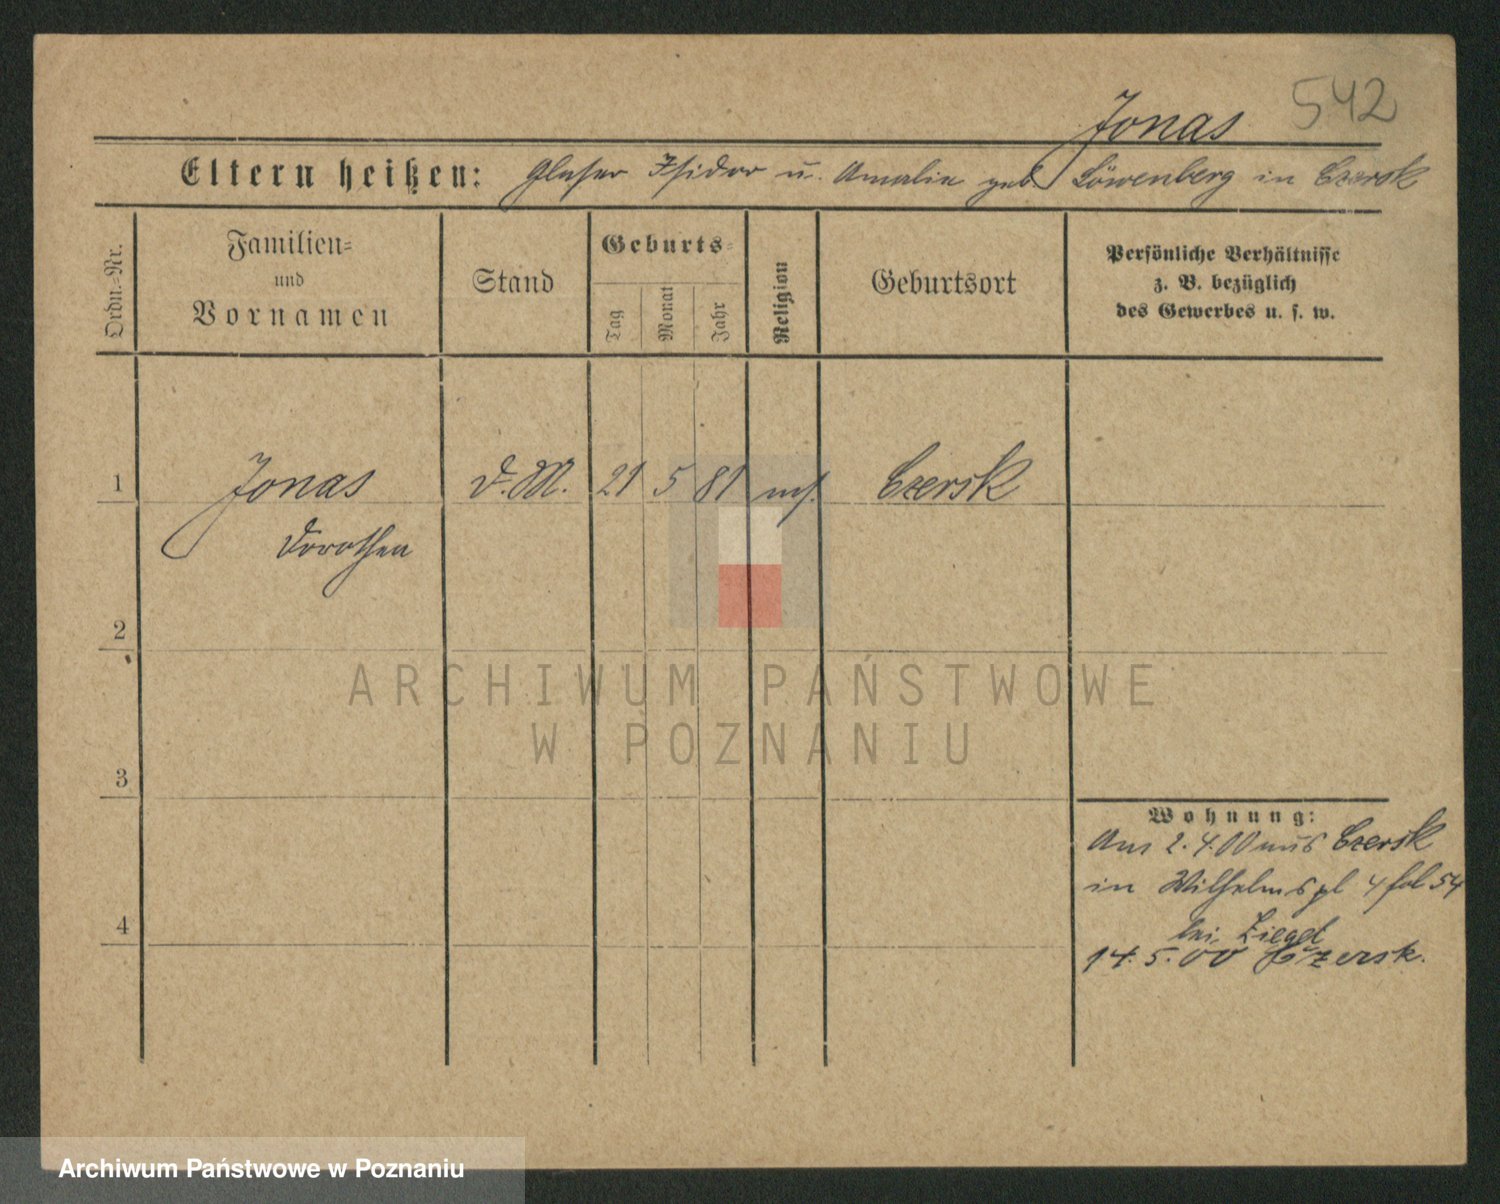 542
Jonas
Eltern heißen: Glaser Isidor u. Amalie geb Löwenberg in Czersk
Ordn.=Nr.
Familien=
und
Vornamen
Stand
Geburts=
Tag
Monat
Jahr
Religion
Geburtsort
Persönliche Verhältnisse
z. B. bezüglich
des Gewerbes u. s. w.
1 Jonas D.M. 21 5 81 mos. Czersk
Dorothea
2
ARCHIWUM PAŃSTWOWE
W POZNANIU
3
Wohnung:
Am 2.4.00 aus Czersk
in Wilhelmspl 4 fol 54
4 bei Ziegel
14.5.00 Czersk.
Archiwum Państwowe w Poznaniu